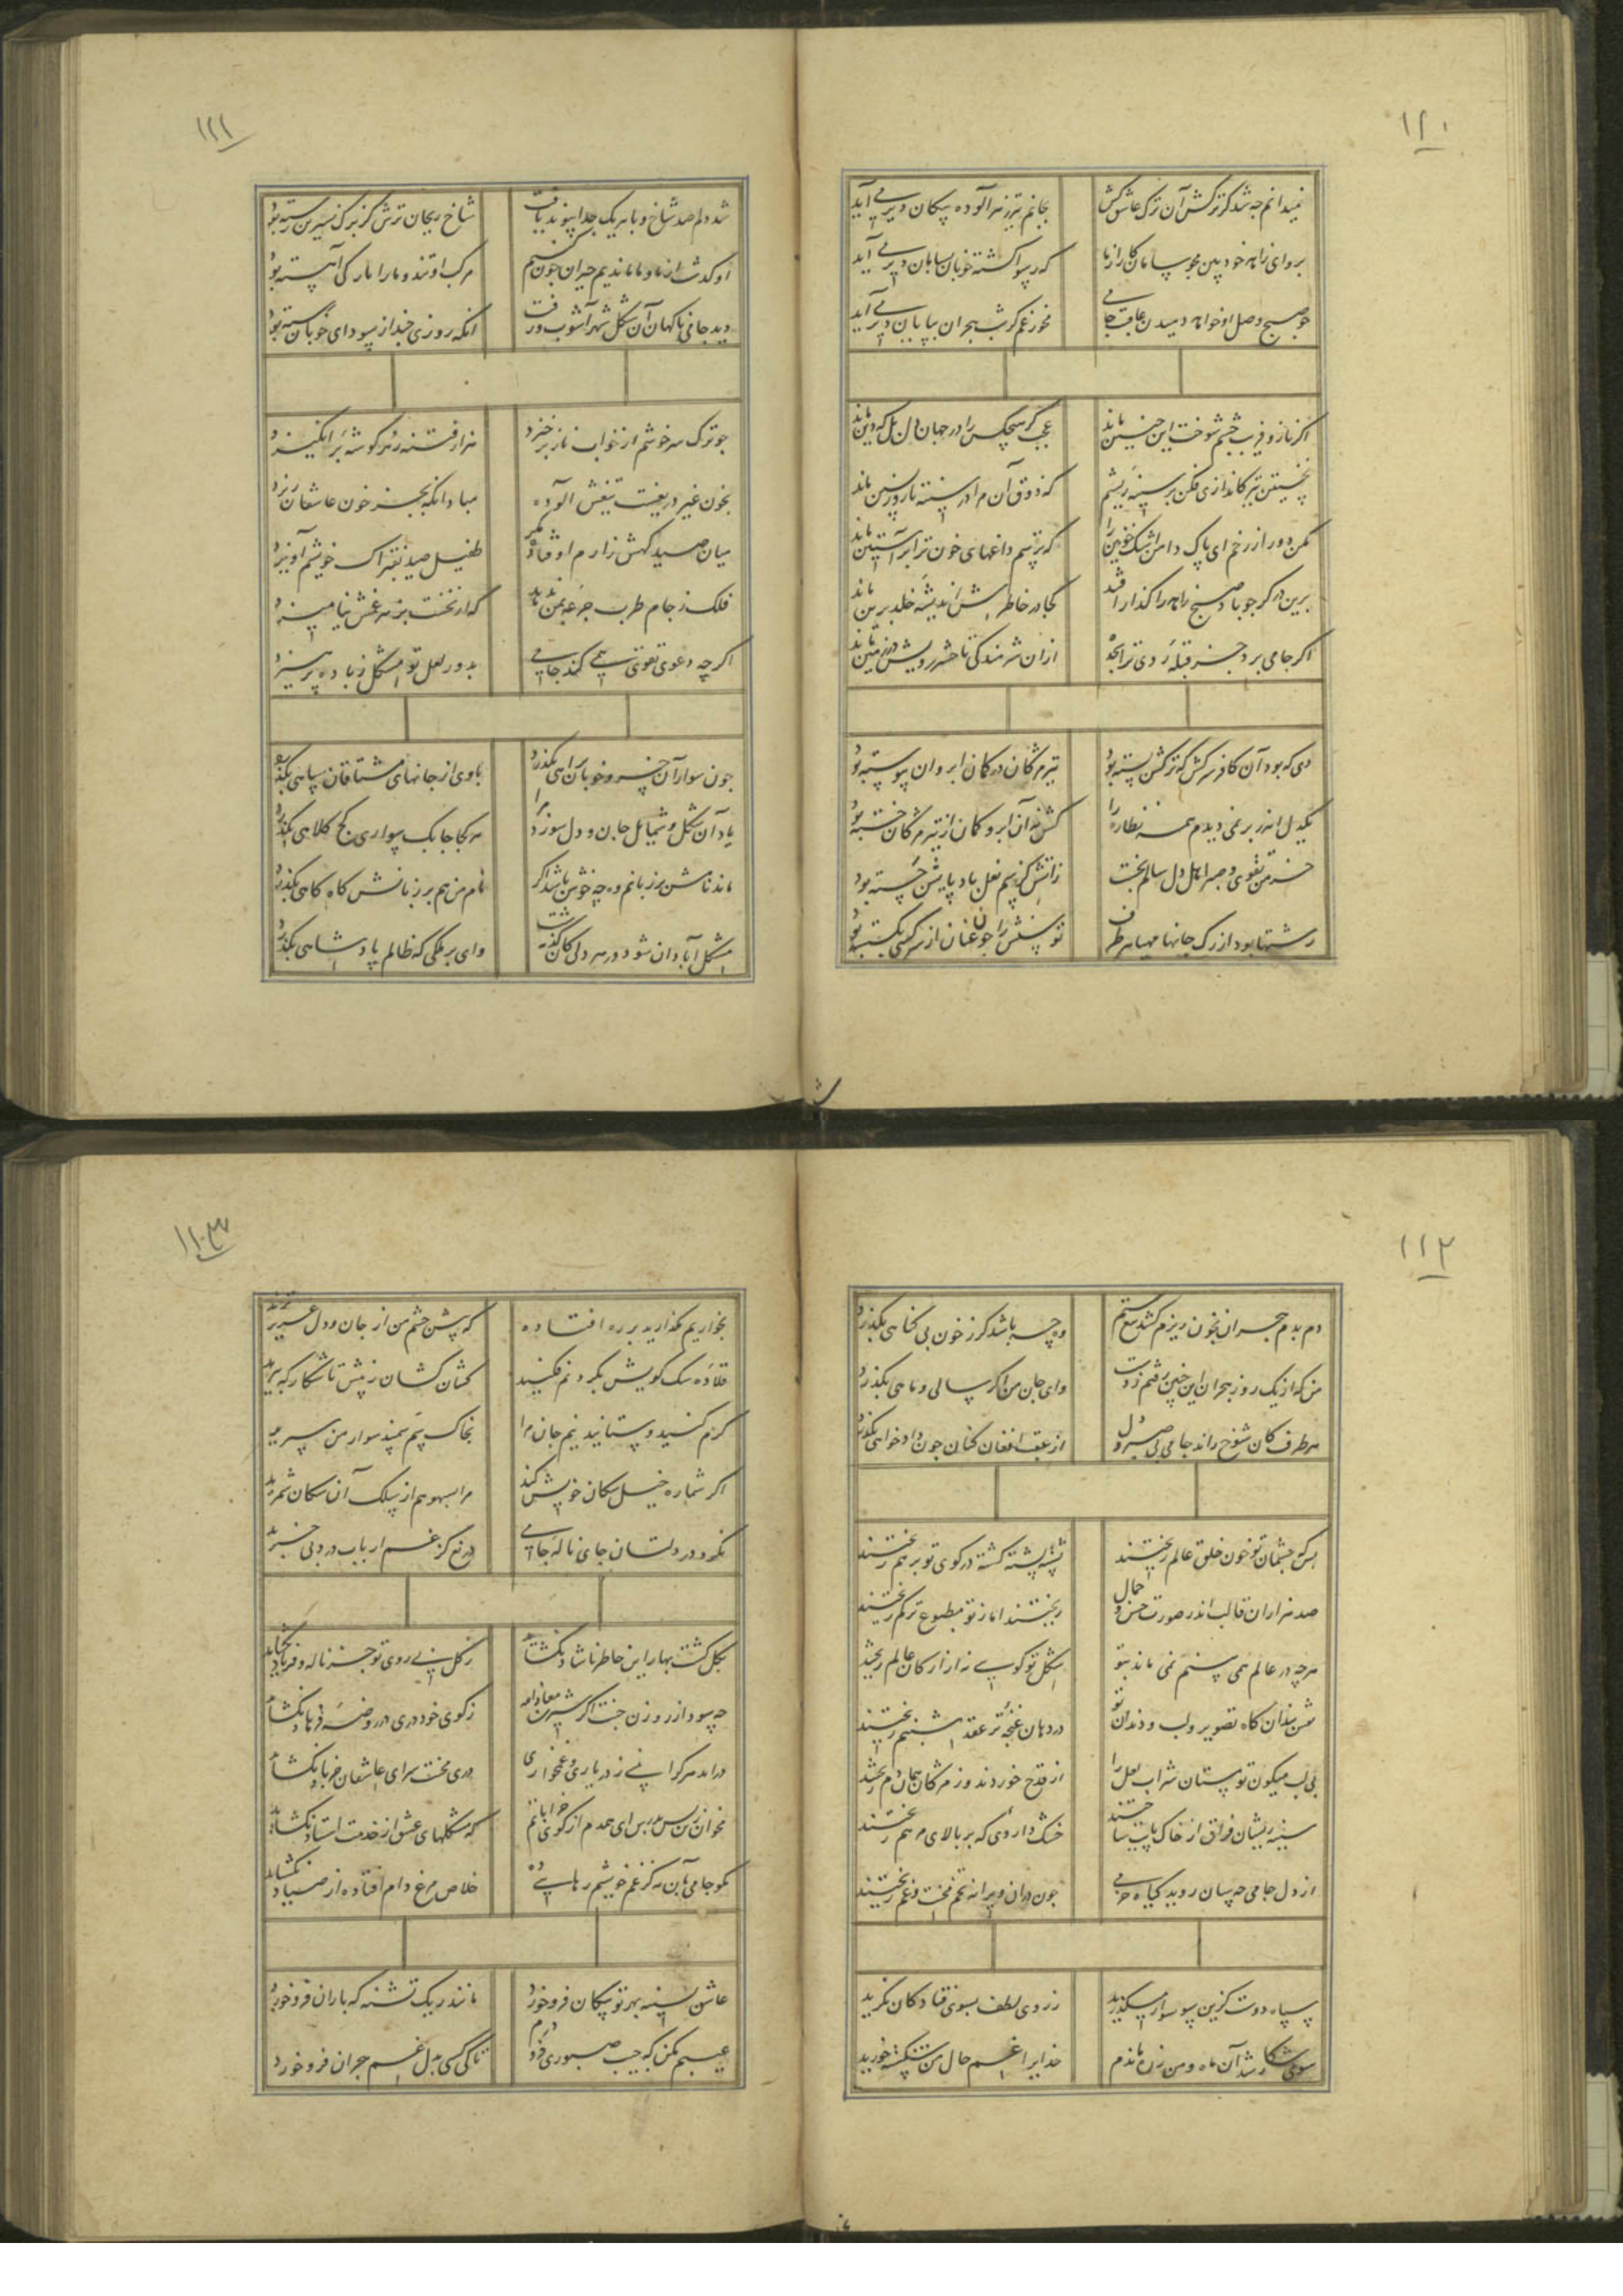 ۱۱۰
نمیدانم چه شد کز ترکش آن ترک عاشق کش بجانم تیر زهرآلوده پیکان دیر می آید
برو ای زاهد خودبین مجو سامان کار از ما که رسوا گشته خوبان بسامان دیر می آید
چو صبح وصل او خواهد دمیدن عاقبت جامی مخور غم گر شب هجران بپایان دیر می آید
اگر ناز و فریب چشم شوخت این چنین ماند عجب گر هیچکس را در جهان دل بل که دین ماند
نخستین تیر کاندازی فکن بر سینه ریشم که ذوق آن مرا در سینه تا روز پسین ماند
مکن دور از رخم ای پاک دامن اشک خونین را که ترسم داغهای خون ترا بر آستین ماند
برین در گر چو باد صبح زاهد را گذار افتد کجا در خاطرش اندیشه خلد برین ماند
اگر جامی برد جز قبله روی ترا سجده از آن شرمندگی تا حشر رویش در زمین ماند
دی که بود آن کافر سرکش که ترکش بسته بود تیر مژگان در کمان ابروان پیوسته بود
یکدل اندر بر نمی دیدم همه نظاره را کش نه آن ابرو کمان از تیر مژگان خسته بود
خرمن تقوی و صبر اهل دل سالم نجست ز آتش کز سم نعل بادپایش جسته بود
رشتها بود از رگ جانها مهیا هر طرف توسنش را چون عنان از سرکشی بگسسته بود
۱۱۱
شد دلم صد شاخ و با هر یک جدا پیوند یافت شاخ ریحان ترش کز برگ نسرین رسته بود
او گذشت از ما و ما ماندیم حیران چون کنیم مرکب او تند و ما را بارگی آهسته بود
دید جامی ناگهان آن شکل شهرآشوب و رفت آنکه روزی چند از سودای خوبان رسته بود
چو ترک سرخوشم از خواب ناز برخیزد هزار فتنه ز هر گوشه برانگیزد
بخون غیر دریغست تیغش آلوده مبادا آنکه بجز خون عاشقان ریزد
میان صیدگهش زارم اوفتاده مگر طفیل صید بفتراک خویشم آویزد
فلک ز جام طرب جرعه بمن ندهد که از نخست بزهر غمش نیامیزد
اگرچه دعوی تقوی همی کند جامی بدور لعل تو مشکل ز باده پرهیزد
چون سوار آن خسرو خوبان براهی بگذرد باوی از جانهای مشتاقان سپاهی بگذرد
یاد آن شکل و شمایل جان و دل سوزد مرا هر کجا چابک سواری کج کلاهی بگذرد
ماند نامش بر زبانم وه چه خوش باشد اگر نام من هم بر زبانش گاه گاهی بگذرد
مشکل آبادان شود در هر دلی کان مه گذشت وای بر ملکی که ظالم پادشاهی بگذرد
۱۱۲
دم بدم هجران بخون ریزم کشد تیغ ستم وه چه باشد گر ز خون بی گناهی بگذرد
من که از یک روز هجران این چنین رفتم ز دست وای جان من اگر سالی و ماهی بگذرد
هر طرف کان شوخ راند جامی بی صبر و دل از عقب افغان کنان چون دادخواهی بگذرد
بس که چشمان تو خون خلق عالم ریختند پشته پشته کشته در کوی تو بر هم ریختند
صد هزاران قالب اندر صورت حسن و جمال ریختند اما ز تو مطبوع تر کم ریختند
هر چه در عالم همی بینم نمی ماند بتو شکل تو گویی نه از ارکان عالم ریختند
نقش بندان گاه تصویر لب و دندان تو در دهان غنچه تر عقد شبنم ریختند
بی لب میگون تو مستان شراب لعل را از قدح خوردند وز مژگان همان دم ریختند
سینه ریشان فراق از خاک پایت ساختند خشک داروی که بر بالای مرهم ریختند
از دل جامی چه سان روید گیاه خرمی چون در آن ویرانه تخم محنت و غم ریختند
سپاه دوست کزین سو سوار میگذرید ز روی لطف بسوی فتادگان نگرید
سوی شکار شد آن ماه و من ز ره ماندم خدایرا غم حال من شکسته خورید
۱۱۳
بخواریم مگذارید بر ره افتاده که پیش چشم من از جان و دل عزیزترید
قلاده سگ کویش بگردنم فکنید کشان کشان ز پیش تا شکارگه ببرید
کرم کنید و ستانید نیم جان مرا بخاک سم سمند سوار من سپرید
اگر شماره خیل سگان خویش کند مرا بسهو هم از سلک آن سگان شمرید
نکرد در دلتان جای ناله جامی دریغ کز غم ارباب درد بی خبرید
بگل گشت بهار این خاطر ناشاد نگشاید ز گل بی روی تو جز ناله و فریاد نگشاید
چه سود از روزن جنت اگر شیرین معاذالله ز کوی خود دری در روضه فرهاد نگشاید
درآید هر کرا بینی ز در یاری و غمخواری در محنت سرای عاشقان جز باد نگشاید
مخوان زین پس بدرس ای همدم از کوی خراباتم که مشکلهای عشق از خدمت استاد نگشاید
مگو جامی بآن مه کز غم خویشم رهایی ده خلاص مرغ دام افتاده از صیاد نگشاید
عاشق بسینه بهر تو پیکان فرو خورد مانند ریگ تشنه که باران فرو خورد
عیبم مکن که جیب صبوری درم تا کی کسی بدل غم هجران فرو خورد